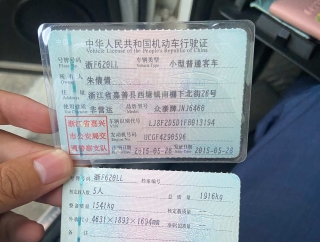 中华人民共和国机动车行驶证
Vehicle License of the People's Republic of China
号牌号码 浙F620LL 车辆类型 小型普通客车
Plate No. Vehicle Type
所有人 朱懂喜
住址 浙江省嘉善县西塘镇南棚下北街26号
使用性质 非营运 品牌型号 众泰牌JNJ6460
浙江省嘉兴
市公安局交
通警察支队
车辆识别代号
发动机号码 UCGF4290596
2015-05-28 2015-05-28
号牌号码 浙F620LL 档案编号
核定载人数 5人 总质量 1916kg
整备质量 1541kg 核定载质量 --
外廓尺寸 4631×1893×1694mm --